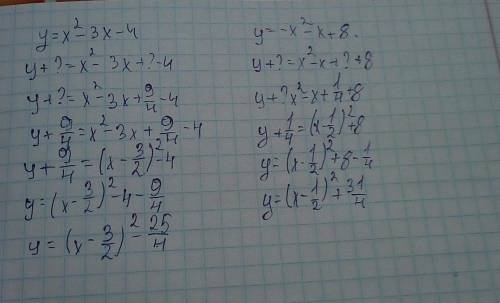 y=x²-3x-4
y+?=x²-3x+?-4
y+?=x²-3x+9/4-4
y+9/4=x²-3x+9/4-4
y+9/4=(x-3/2)²-4
y=(x-3/2)²-4-9/4
y=(x-3/2)²-25/4
y=-x²-x+8.
y+?=x²-x+?+8
y+?x²-x+1/4+8
y+1/4=(x-1/2)²+8
y=(x-1/2)²+8-1/4
y=(x-1/2)²+31/4